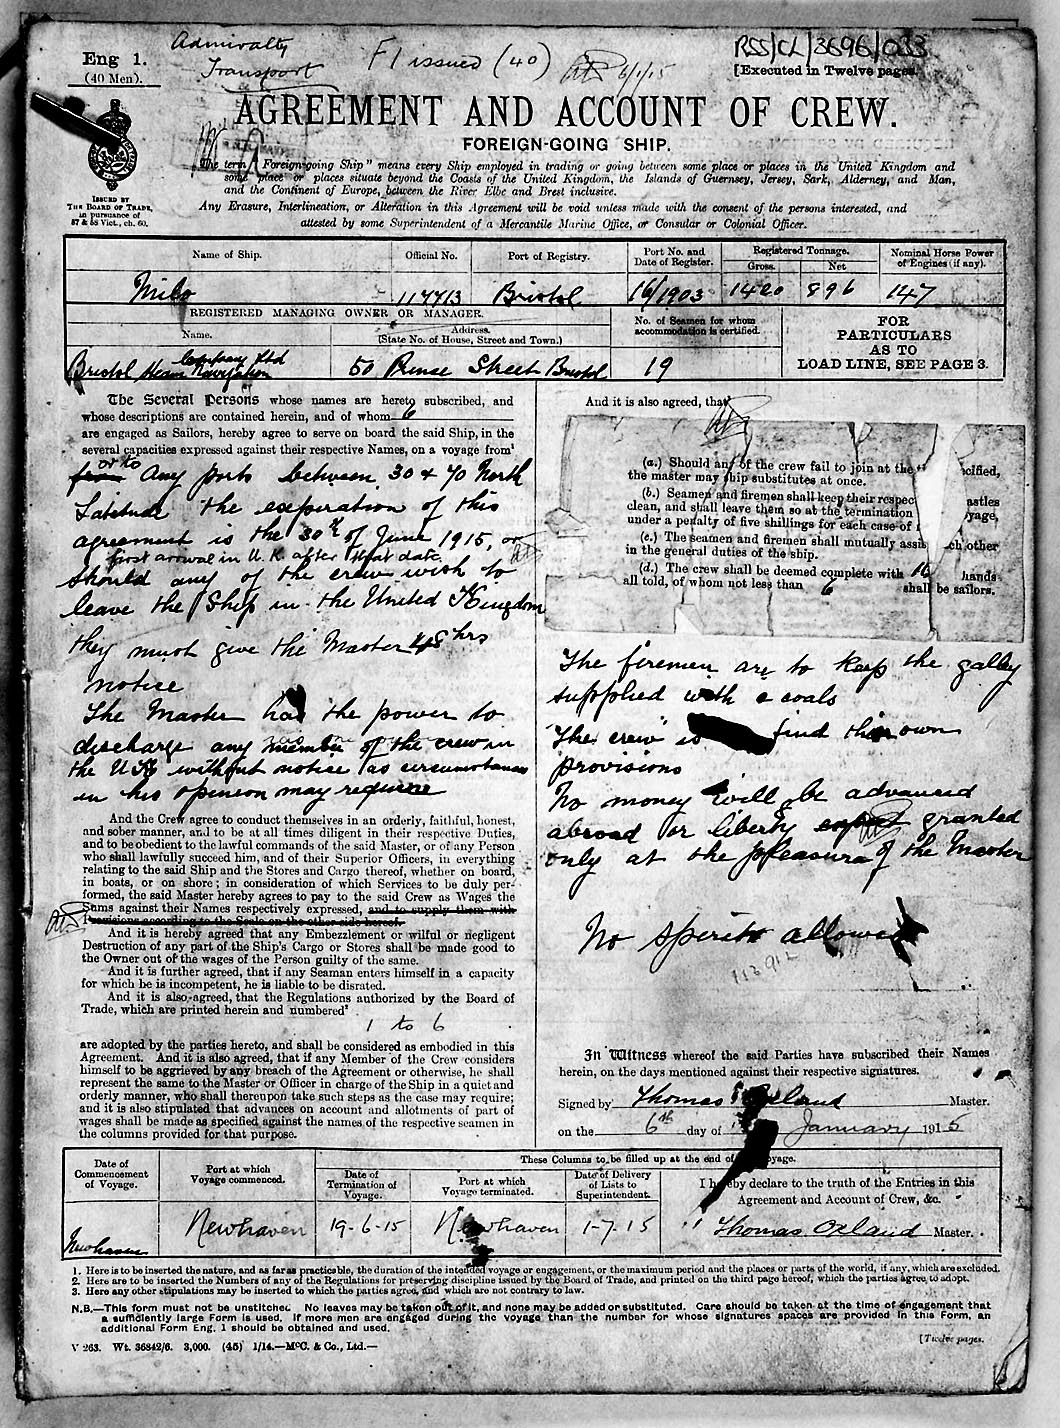 Eng 1.
(40 Men).
Admiralty
Transport
F1 issued (40)
6/1/15
RSS/CL/3696/033
[Executed in Twelve pages.
AGREEMENT AND ACCOUNT OF CREW.
FOREIGN-GOING SHIP.
The term "Foreign-going Ship" means every Ship employed in trading or going between some place or places in the United Kingdom and
some place or places situate beyond the Coasts of the United Kingdom, the Islands of Guernsey, Jersey, Sark, Alderney, and Man,
and the Continent of Europe, between the River Elbe and Brest inclusive.
Any Erasure, Interlineation, or Alteration in this Agreement will be void unless made with the consent of the persons interested, and
attested by some Superintendent of a Mercantile Marine Office, or Consular or Colonial Officer.
ISSUED BY
THE BOARD OF TRADE,
in pursuance of
57 & 58 Vict., ch. 60.
Name of Ship.
Official No.
Port of Registry.
Port No. and
Date of Register.
Registered Tonnage.
Gross.
Net
Nominal Horse Power
of Engines (if any).
Milo
117713
Bristol
16/1903
1420
896
147
REGISTERED MANAGING OWNER OR MANAGER.
Name.
Address.
(State No. of House, Street and Town.)
No. of Seamen for whom
accommodation is certified.
FOR
PARTICULARS
AS TO
LOAD LINE, SEE PAGE 3.
Company Ltd
Bristol Steam Navigation
50 Prince Street Bristol
19
The Several Persons whose names are hereto subscribed, and
whose descriptions are contained herein, and of whom 6
are engaged as Sailors, hereby agree to serve on board the said Ship, in the
several capacities expressed against their respective Names, on a voyage from¹
or to
from Any ports between 30 & 70 North
Latitude the experation of this
agreement is the 30th of June 1915, or
first arrival in U.K. after that date
should any of the crew wish to
leave the Ship in the United Kingdom
they must give the Master 48 hrs
notice
The Master has the power to
discharge any member of the crew in
the UK without notice as circumstances
in his opinion may require
And the Crew agree to conduct themselves in an orderly, faithful, honest,
and sober manner, and to be at all times diligent in their respective Duties,
and to be obedient to the lawful commands of the said Master, or of any Person
who shall lawfully succeed him, and of their Superior Officers, in everything
relating to the said Ship and the Stores and Cargo thereof, whether on board,
in boats, or on shore; in consideration of which Services to be duly per-
formed, the said Master hereby agrees to pay to the said Crew as Wages the
Sums against their Names respectively expressed, and to supply them with
Provisions according to the Scale on the other side hereof
And it is hereby agreed that any Embezzlement or wilful or negligent
Destruction of any part of the Ship's Cargo or Stores shall be made good to
the Owner out of the wages of the Person guilty of the same.
And it is further agreed, that if any Seaman enters himself in a capacity
for which he is incompetent, he is liable to be disrated.
And it is also agreed, that the Regulations authorized by the Board of
Trade, which are printed herein and numbered²
1 to 6
are adopted by the parties hereto, and shall be considered as embodied in this
Agreement. And it is also agreed, that if any Member of the Crew considers
himself to be aggrieved by any breach of the Agreement or otherwise, he shall
represent the same to the Master or Officer in charge of the Ship in a quiet and
orderly manner, who shall thereupon take such steps as the case may require;
and it is also stipulated that advances on account and allotments of part of
wages shall be made as specified against the names of the respective seamen in
the columns provided for that purpose.
And it is also agreed, that³
(a.) Should any of the crew fail to join at the cified,
the master may ship substitutes at once.
(b.) Seamen and firemen shall keep their respec astles
clean, and shall leave them so at the termination yage,
under a penalty of five shillings for each case of
(c.) The seamen and firemen shall mutually assis ch other
in the general duties of the ship.
(d.) The crew shall be deemed complete with 16 hands
all told, of whom not less than 6 shall be sailors.
The firemen are to keep the galley
supplied with coals
The crew find their own
provisions
No money will be advanced
abroad or liberty granted
only at the pleasure of the Master
No spirits allowed
113912
In Witness whereof the said Parties have subscribed their Names
herein, on the days mentioned against their respective signatures.
Signed by Thomas Oxland Master.
on the 6th day of January 1915
Date of
Commencement
of Voyage.
Port at which
Voyage commenced.
These Columns to be filled up at the end of voyage.
Date of
Termination of
Voyage.
Port at which
Voyage terminated.
Date of Delivery
of Lists to
Superintendent.
I hereby declare to the truth of the Entries in this
Agreement and Account of Crew, &c.
Newhaven
Newhaven
19-6-15
Newhaven
1-7-15
Thomas Oxland Master.
1. Here is to be inserted the nature, and as far as practicable, the duration of the intended voyage or engagement, or the maximum period and the places or parts of the world, if any, which are excluded.
2. Here are to be inserted the Numbers of any of the Regulations for preserving discipline issued by the Board of Trade, and printed on the third page hereof, which the parties agree to adopt.
3. Here any other stipulations may be inserted to which the parties agree, and which are not contrary to law.
N.B.—This form must not be unstitched. No leaves may be taken out of it, and none may be added or substituted. Care should be taken at the time of engagement that
a sufficiently large Form is used. If more men are engaged during the voyage than the number for whose signatures spaces are provided in this Form, an
additional Form Eng. 1 should be obtained and used.
V 263. Wt. 36842/6. 3,000. (45) 1/14.—McC. & Co., Ltd.—
[Twelve pages.